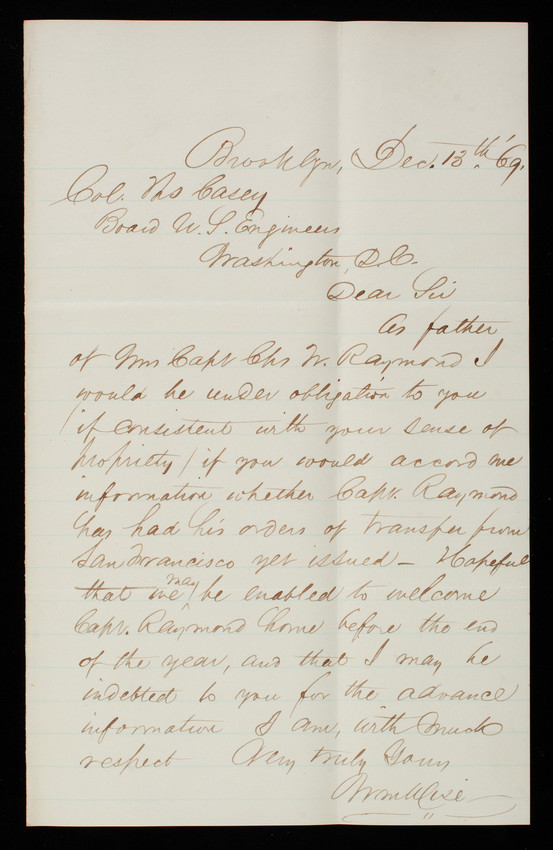 Brooklyn, Dec. 13th 69.
Col. Thos Casey
Board U. S. Engineers
Washington, D.C.
Dear Sir
As father
of Mrs Capt Chs W. Raymond I
would be under obligation to you
(if consistent with your sense of
propriety) if you would accord me
information whether Capt. Raymond
has had his orders of transfer from
San Francisco yet issued - Hopeful
that we may be enabled to welcome
Capt. Raymond home before the end
of the year, and that I may be
indebted to you for the advance
information I am, with much
respect Very truly Yours
Wm Wise